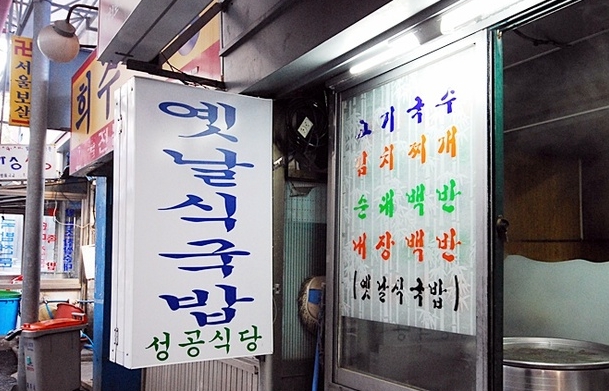 卍 서울보살
희수
옛날식국밥
성공식당
고기국수
김치찌개
순대백반
내장백반
(옛날식국밥)